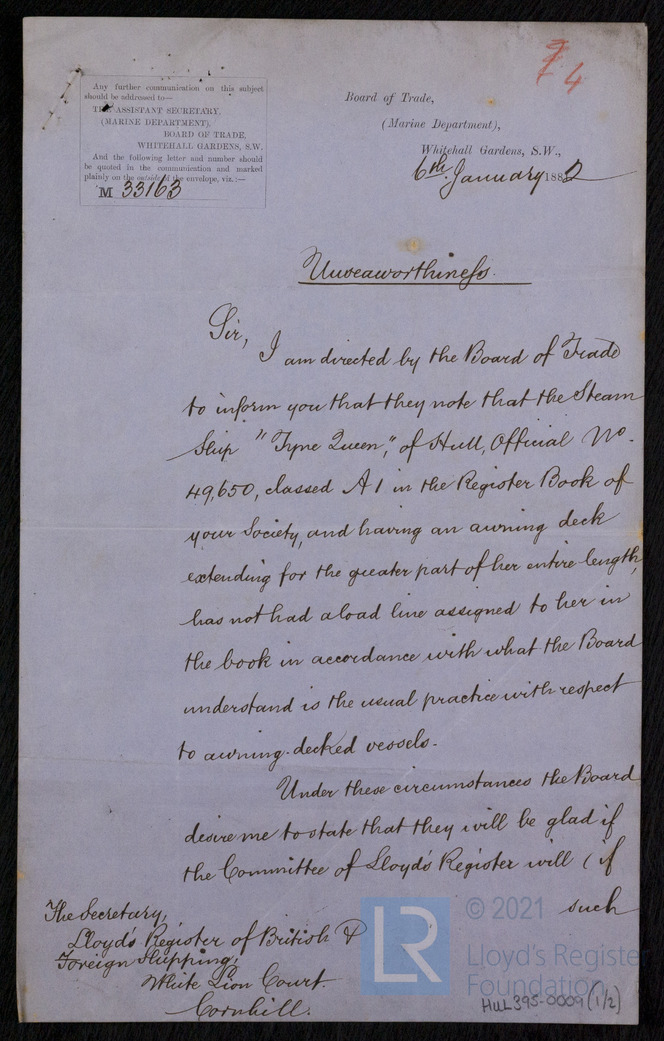 4
Any further communication on this subject
should be addressed to—
THE ASSISTANT SECRETARY,
(MARINE DEPARTMENT),
BOARD OF TRADE,
WHITEHALL GARDENS, S.W.
And the following letter and number should
be quoted in the communication and marked
plainly on the outside of the envelope, viz.:—
M 33163
Board of Trade,
(Marine Department),
Whitehall Gardens, S.W.,
6th January 1882
Unseaworthiness.
Sir,
I am directed by the Board of Trade
to inform you that they note that the Steam
Ship "Tyne Queen", of Hull, Official No.
49,650, classed A1 in the Register Book of
your Society, and having an awning deck
extending for the greater part of her entire length,
has not had a load line assigned to her in
the book in accordance with what the Board
understand is the usual practice with respect
to awning-decked vessels.
Under these circumstances the Board
desire me to state that they will be glad if
the Committee of Lloyd's Register will (if
such
The Secretary,
Lloyd's Register of British &
Foreign Shipping,
White Lion Court
Cornhill.
LR
© 2021
Lloyd's Register
Foundation
HUL395-0009 (1/2)